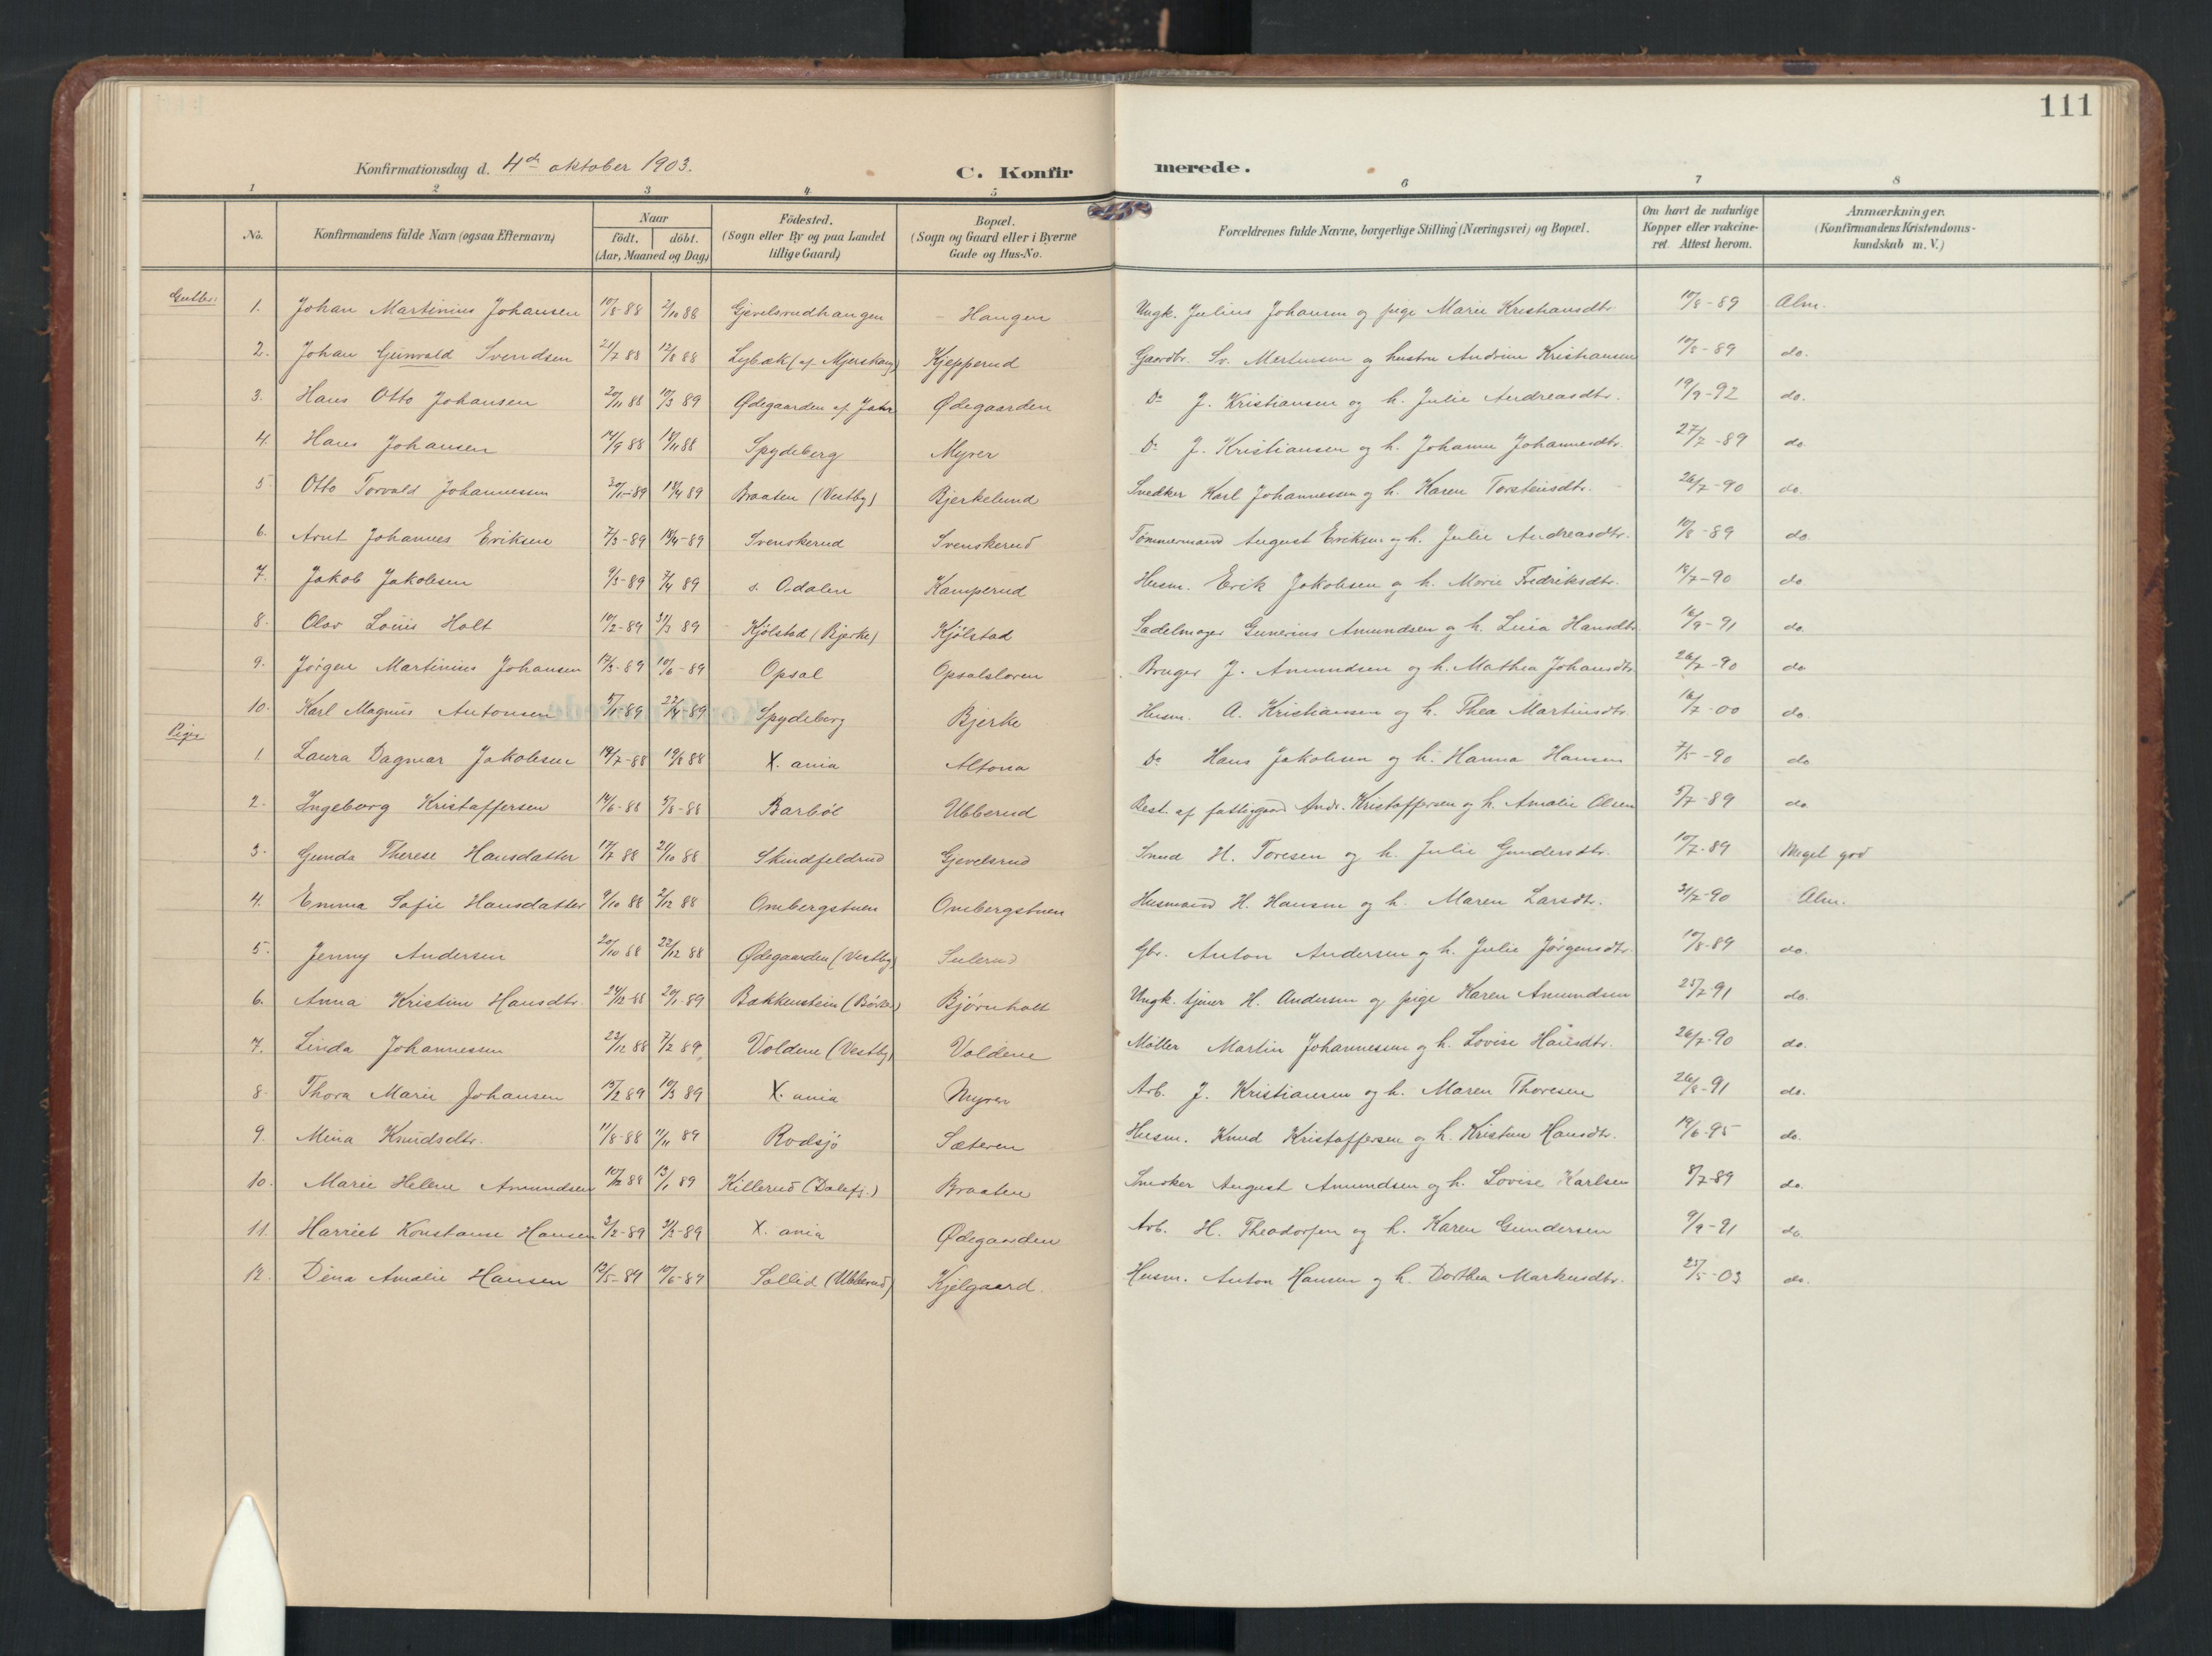 111
Konfirmationsdag d. 4de oktober 1903.
C. Konfirmerede.
1 2 3 4 5 6 7 8
No.
Konfirmandens fulde Navn (ogsaa Efternavn)
Naar
født. døbt.
(Aar, Maaned og Dag)
Födested.
(Sogn eller By og paa Landet
tillige Gaard)
Bopæl.
(Sogn og Gaard eller i Byerne
Gade og Hus-No.
Forældrenes fulde Navne, borgerlige Stilling (Næringsvei) og Bopæl.
Om havt de naturlige
Kopper eller vakcine-
ret. Attest herom.
Anmærkninger.
(Konfirmandens Kristendoms-
kundskab m. V.)
Gutter:
1. Johan Martinius Johansen 10/8-88 2/10 88 Gjevelsrudhaugen Haugen Ungk. Julius Johansen og pige Marie Kristiansdtr. 10/8-89 Alm.
2. Johan Gunvald Svendsen 21/7 88 12/8 88 Lybæk (af Mjerskaug) Kjepperud Gaardbr. Sv. Mertensen og hustru Andrine Kristiansen 10/8-89 do.
3. Hans Otto Johansen 20/11 88 10/3 89 Ødegaarden af Jahr Ødegaarden Do J. Kristiansen og h. Julie Andreasdtr. 19/9-92 do.
4. Hans Johansen 14/9 88 18/11 88 Spydeberg Myrer Do J. Kristiansen og h. Johanne Johannesdtr. 27/7-89 do
5. Otto Torvald Johannessen 20/1-89 18/4 89 Braaten (Vestby) Bjerkelund Snedker Karl Johannessen og h. Karen Torsteinsdtr. 26/7-90 do.
6. Arnt Johannes Eriksen 7/3-89 18/4-89 Svenskerud Svenskerud Tømmermand August Eriksen og h. Julie Andreasdtr. 10/8-89 do.
7. Jakob Jakobsen 9/3-89 7/4 89 s. Odalen Kamperud Husm. Erik Jakobsen og h. Marie Fredriksdtr. 18/7-90 do
8. Olav Louis Holt 10/2-89 31/3 89 Kjølstad (Bjerke) Kjølstad Sadelmager Gunerius Amundsen og h. Lina Hansdtr. 16/9-91 do.
9. Jørgen Martinius Johansen 17/3-89 10/6-89 Opsal Opsalsloven Bruger J. Amundsen og h. Mathea Johansdtr 26/7-90 do
10. Karl Magnus Antonsen 5/11-89 22/4-89 Spydeberg Bjerke Husm. A. Kristiansen og h. Thea Martinsdtr. 16/7-00 do.
Piger
1. Laura Dagmar Jakobsen 14/7-88 19/8 88 X.ania Altona Do Hans Jakobsen og h. Hanna Hansen 7/5-90 do
2. Ingeborg Kristoffersen 14/6-88 5/8-88 Barbøl Ubberud Best. af fattiggaard Andr. Kristoffersen og h. Amalie Olsen 5/7-89 do.
3. Gunda Therese Hansdatter 17/7 88 21/10 88 Skindfeldrud Gjevelsrud Smed H. Toresen og h. Julie Gundersdtr. 10/7-89 Meget god
4. Emma Sofie Hansdatter 9/10 88 2/12 88 Ombergstuen Ombergstuen Husmand H. Hansen og h. Maren Larsdtr. 31/7-90 Alm.
5. Jenny Andersen 20/10 88 22/12 88 Ødegaarden (Vestby) Sulerud Gbr. Anton Andersen og h. Julie Jørgensdtr. 10/8-89 do.
6. Anna Kristine Hansdtr. 24/12-88 20/1-89 Bakkenstein (Børke) Bjørnholt Ungk. tjener H. Andersen og pige Karen Amundsen 25/7-91 do.
7. Linda Johannessen 22/12 88 7/2 89 Voldene (Vestby) Voldene Møller Martin Johannesen og h. Lovise Hansdtr. 26/7-90 do.
8. Thora Marie Johansen 15/2 89 10/3 89 X.ania Myrer Arb. J. Kristiansen og h. Maren Thoresen 26/8-91 do.
9. Mina Knudsdtr. 11/8-88 11/11 89 Rodsjø Sæteren Husm. Knud Kristoffersen og h. Kristine Hansdtr. 19/6-95 do.
10. Marie Helene Amundsen 10/12 88 13/1 89 Killerud (Dalefj.) Braaten Snedker August Amundsen og h. Lovise Karlsen 5/7-89 do.
11. Harriet Konstanse Hansen 2/2-89 3/3-89 X.ania Ødegaarden Arb. H. Theodorsen og h. Karen Gundersen 9/9-91 do.
12. Dina Amalie Hansen 12/5-89 10/6-89 Sollid (Ubberud) Kjelgaard. Husm. Anton Hansen og h. Dorthea Markusdtr. 25/5-03 do.